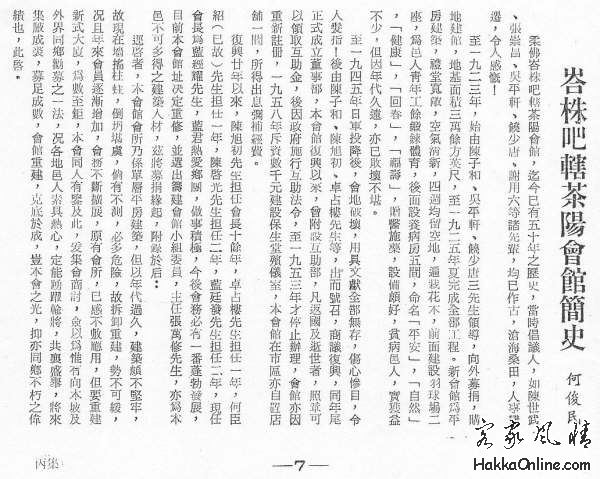 峇株吧轄茶陽會館簡史
何俊民
柔佛峇株吧轄茶陽會館，迄今已有五十年之歷史，當時倡議人，如陳世武
、張崇昌、吳平軒、饒少唐、謝用六等諸先輩，均已作古，滄海桑田，人事變
遷，令人感慨！
至一九二三年，始由陳子和、吳平軒、饒少唐三先生領導，向外募捐，購
地建館，地基面積三萬餘方英尺，至一九二五年夏完成全部工程。新會館爲平
房建築，禮堂寬敞，空氣淸新，四週均留空地，遍栽花木，前面建設羽球場二
座，爲邑人靑年工餘鍛鍊體育，後面設養病房五間，命名「平安」，「自然」
，「健康」，「回春」，「福壽」，贈醫施藥，設備頗好，貧病邑人，實獲益
不少，但因年代久遠，亦已敗壞不堪。
至一九四五年日軍投降後，會地破壞，用具文獻全部無存，傷心慘目，令
人髮指！後由陳子和、陳旭初、卓占樓先生等，出而號召，商議復興，同年尾
正式成立董事部，本會館復興以來，曾附設互助部，凡返國及逝世者，照章可
以領取互助金，後因政府施行互助法令，至一九五三年才停止辦理，會館亦因
重新註册，一九五八年斥資數千元建設保生堂殯儀室，本會館在市區亦自置店
舖一間，所得出息彌補經費。
復興廿年以來，陳旭初先生担任會長十餘年，卓占樓先生担任一年，何臣
紹（已故）先生担任一年，陳啓光先生担任二年，藍廷發先生担任二年，現任
會長爲藍經耀先生，藍君熱愛鄉團，做事積極，今後會務必有一番蓬勃發展，
目前本會館址決定重修，並選出籌建會館小組委員，主任張萬修先生，亦爲本
邑不可多得之建築人材，茲將募捐緣起，附錄於后：
逕啓者，本會館會所乃係單層平房建築，但以年代過久，建築頗不堅牢，
故現在墻搖柱蛀，倒坍堪虞，倘有不測，必多危險，故拆卸重建，勢不可緩，
况且年來會員逐漸增加，會務不斷擴展，原有會所，已感不敷應用，但要重建
新式大廈，爲數至鉅，本會同人有鑒及此，爰集會商討，僉以爲惟有向本坡及
外界同鄉勸募之一法，况各地邑人素具熱心，定能踴躍輸將，共襄盛舉，將來
集腋成裘，募足成數，會館重建，克底於成，豈不會之光，抑亦同鄉不朽之偉
績也，此啓。
—7—
丙集
客家風情
HakkaOnline.com